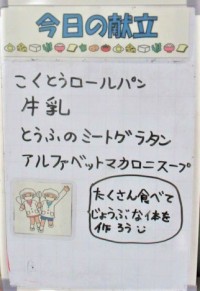 今日の献立
こくとうロールパン
牛乳
とうふのミートグラタン
アルファベットマカロニスープ
たくさん食べて
じょうぶな体を
作ろう